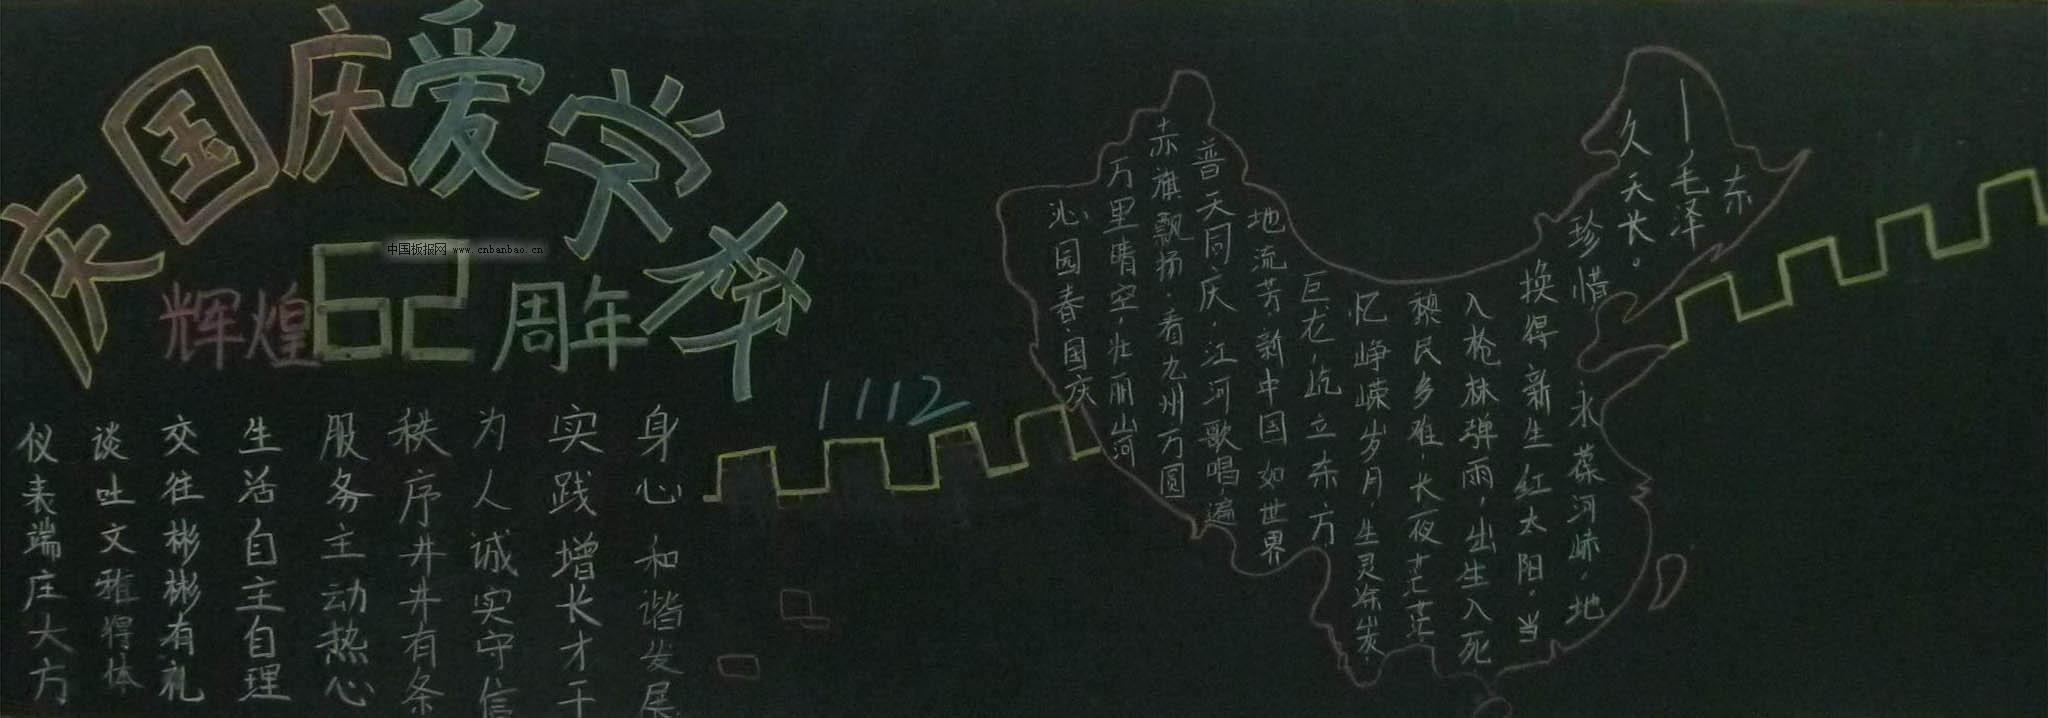 庆国庆爱学举
辉煌62周年
中国板报网 www.cnbanbao.cn
1112
仪表端庄大方
谈吐文雅得体
交往彬彬有礼
生活自主自理
服务主动热心
秩序井井有条
为人诚实守信
实践增长才干
身心和谐发展
沁园春·国庆
万里晴空,壮丽山河
赤旗飘扬.看九州方圆
普天同庆,江河歌唱,遍
地流芳.新中国如世界
巨龙,屹立东方
忆峥嵘岁月,生灵涂炭.
黎民多难,长夜茫茫
入枪林弹雨,出生入死
换得新生红太阳.当
珍惜,永葆河山,地
久天长。
——毛泽东